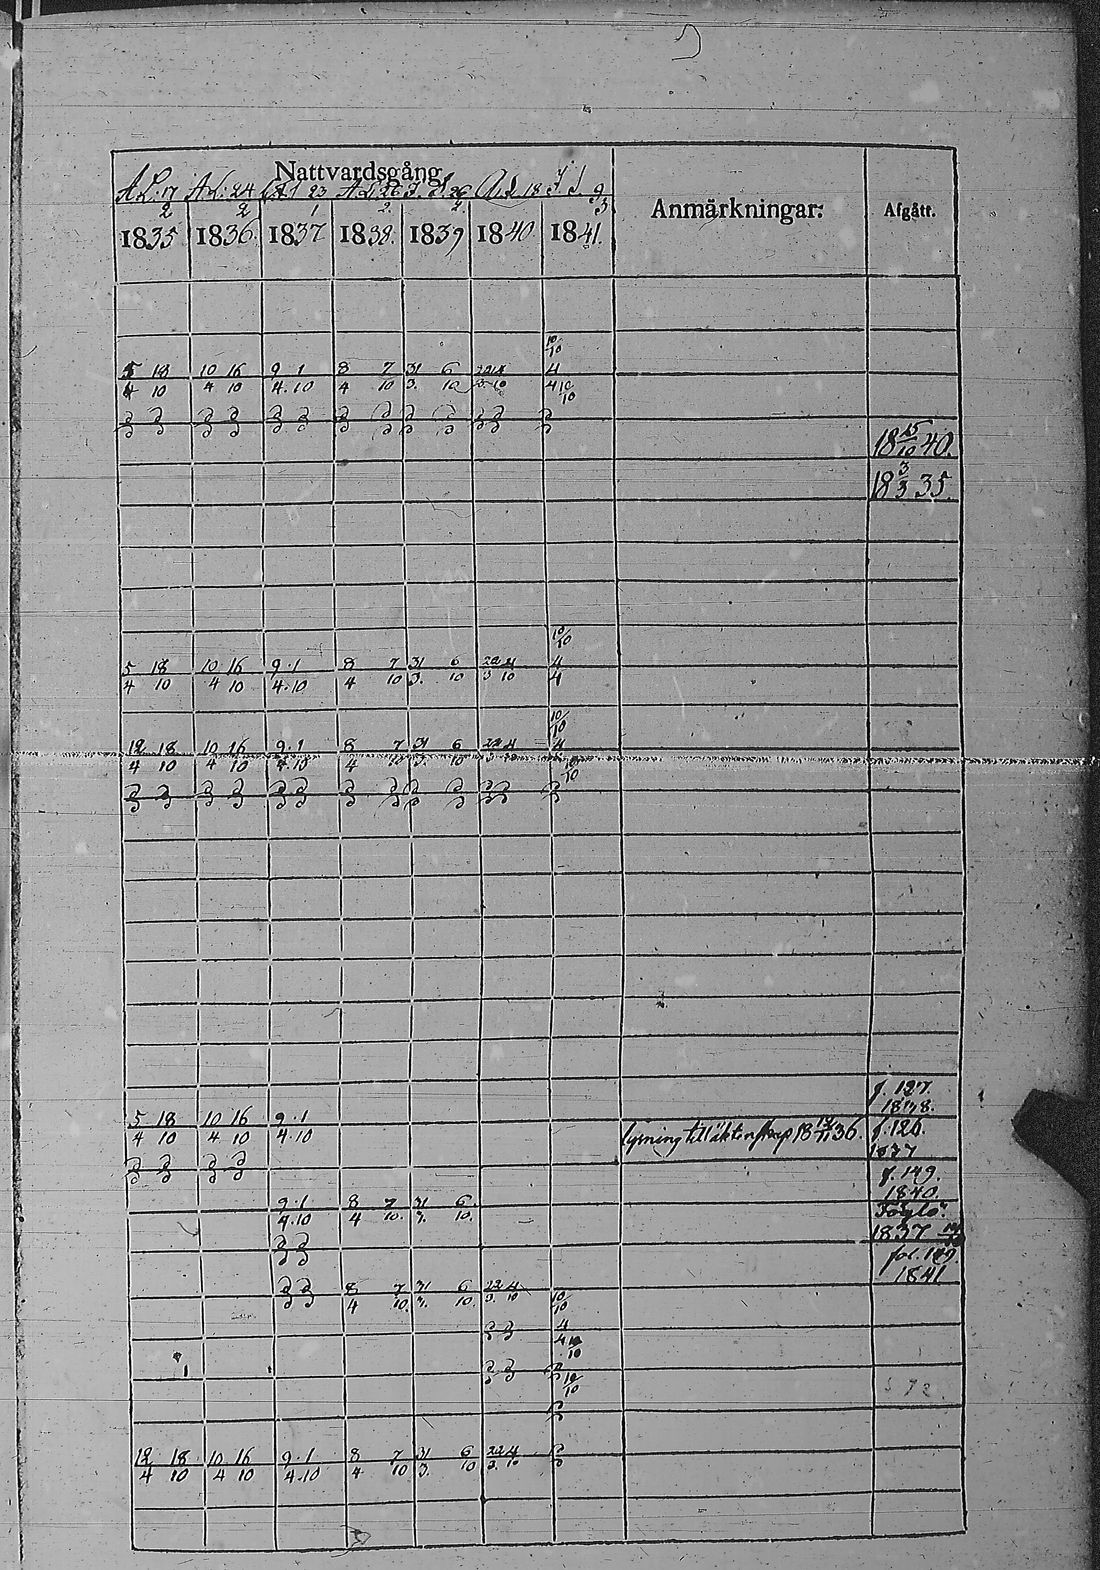 Nattvardsgång.
A.L. 17/2 A.L. 24/2 A.L. 23/1 A.L. 26/2. J. S. 26/2. A.L. 18 J. S. 9/3
Anmärkningar:
Afgått.
1835 1836. 1837 1838. 1839 1840 1841.
10/10
5/4 18/10 10/4 16/10 9/4 1/10 8/4 7/10 31/3. 6/10 22/3 4/10 4/4 10/10
18 15/10 40.
18 3/3 35.
10/10
5/4 18/10 10/4 16/10 9/4 1/10 8/4 7/10 31/3. 6/10 22/3 4/10 4/4
10/10
12/4 18/10 10/4 16/10 9/4 1/10 8/4 7/10 31/3. 6/10 22/3 4/10 4 10/10
f. 127.
1838.
5/4 18/10 10/4 16/10 9/4 1/10
lysning till äktenskap 18 13/11 36. f. 126.
1837
f. 149.
1840.
9/4 1/10 8/4 7/10. 31/3. 6/10. Föglö.
1837
fol. 149.
1841
8/4 7/10. 31/3. 6/10. 22/3. 4/10 10/10
4/4 10/10
10/10
12/4 18/10 10/4 16/10 9/4 1/10 8/4 7/10 31/3. 6/10 22/3. 4/10